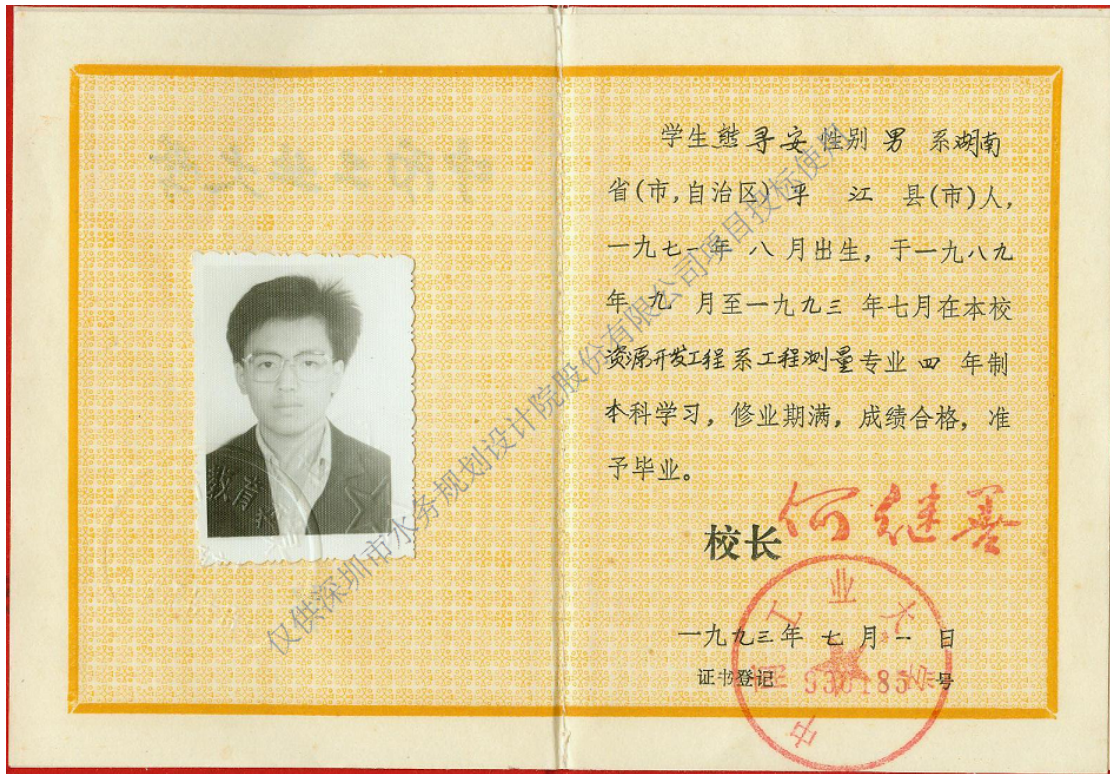 学生熊寻安性别 男 系湖南
省(市,自治区) 平 江 县(市)人,
一九七一年 八 月出生, 于一九八九
年 九 月至一九九三 年七月在本校
资源开发工程系工程测量专业 四 年制
本科学习, 修业期满, 成绩合格, 准
予毕业。
校长 何继善
一九九三年 七 月 一 日
证书登记 930185 号
中南工业大学
仅供深圳市水务规划设计院股份有限公司项目投标使用